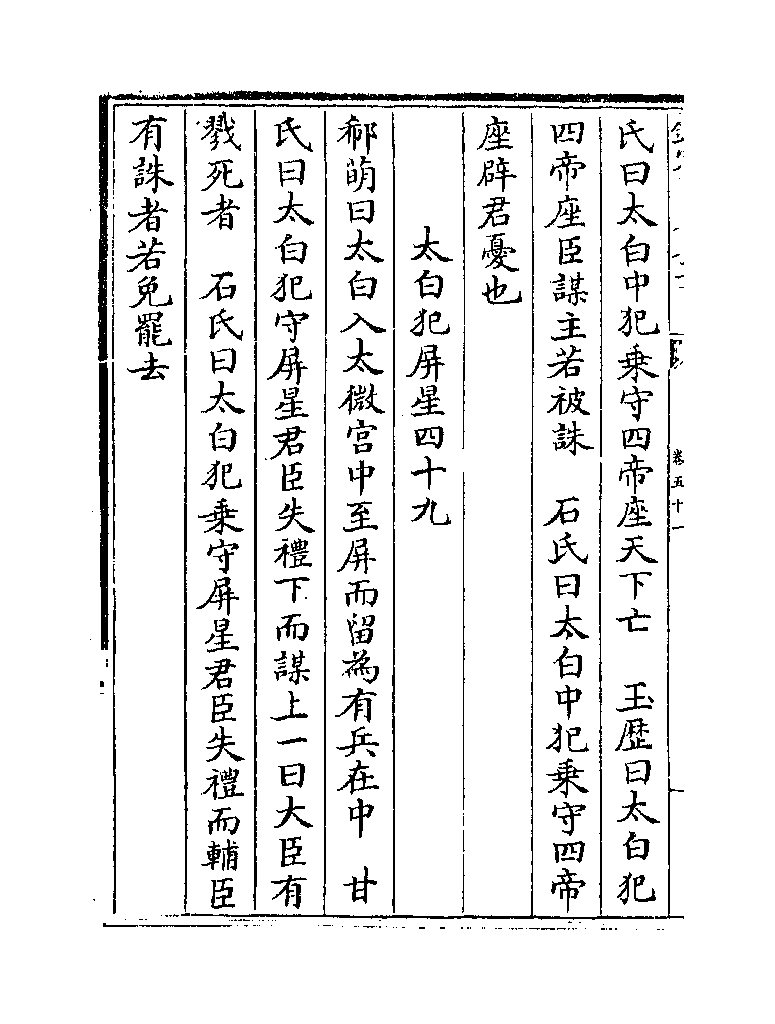 氏曰太白中犯乗守四帝座天下亡　玉歴曰太白犯
四帝座臣謀主若被誅　石氏曰太白中犯乗守四帝
座辟君憂也
太白犯屏星四十九
郗萌曰太白入太微宫中至屏而留為有兵在中　甘
氏曰太白犯守屏星君臣失禮下而謀上一曰大臣有
戮死者　石氏曰太白犯乗守屏星君臣失禮而輔臣
有誅者若免罷去
卷五十一